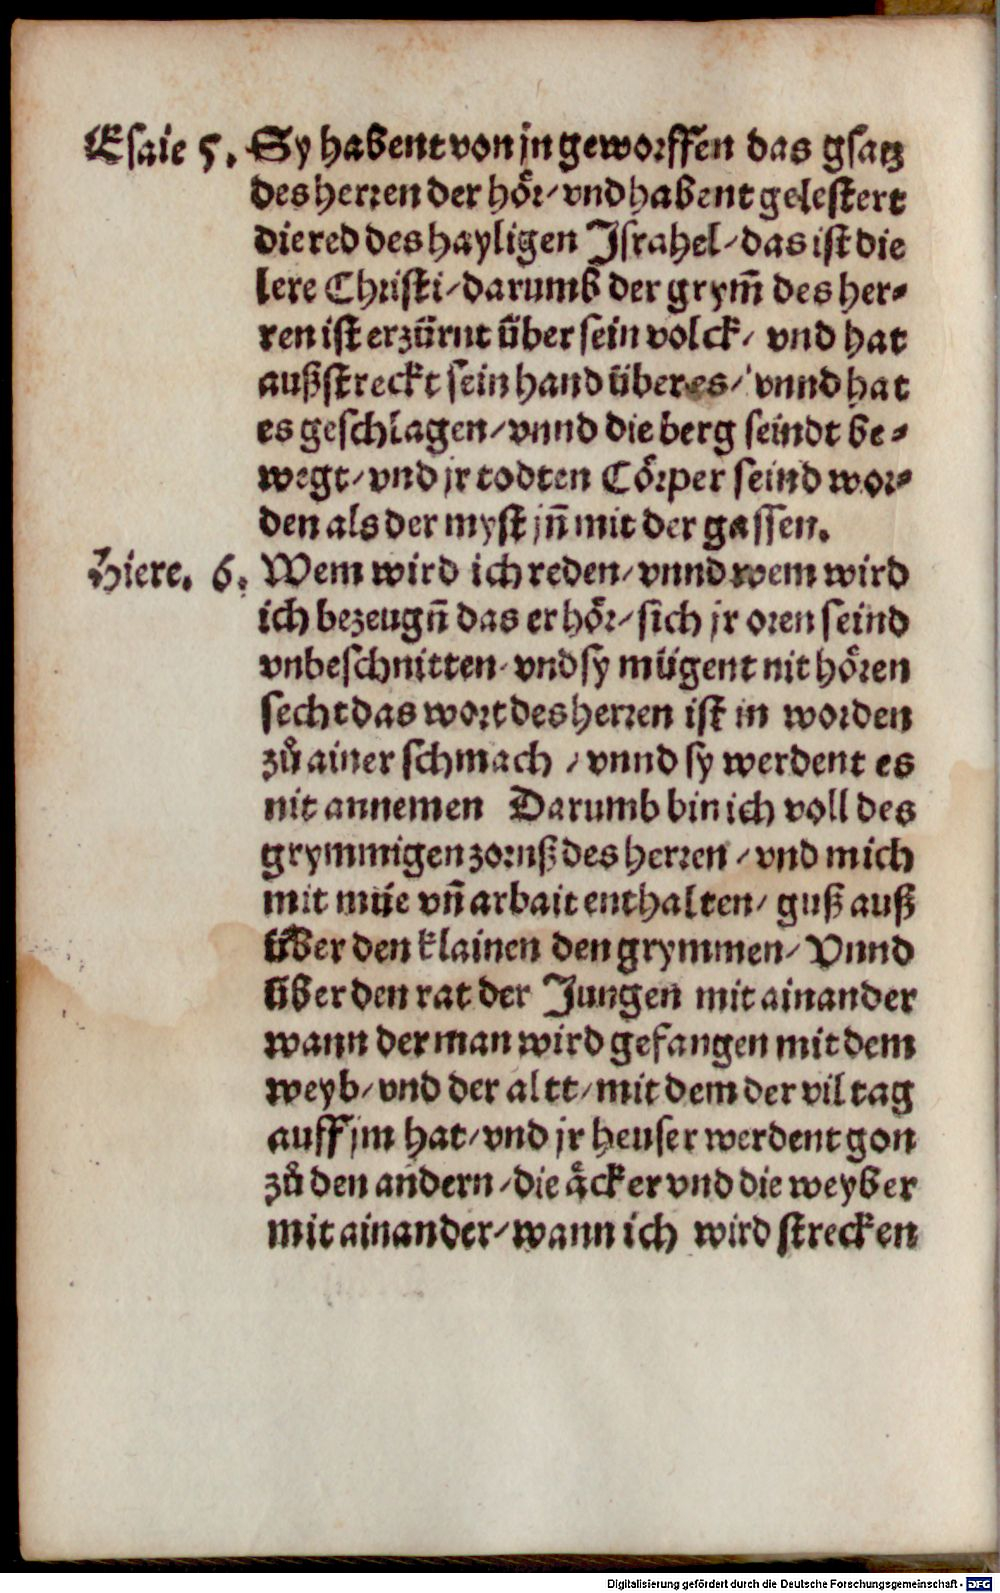 Esaie 5. Sy habent von jn geworffen das gsatz
des herren der hör/ vnd habent gelestert
die red des hayligen Israhel/ das ist die
lere Christi/ darumb der grym̃ des her⸗
ren ist erzürnt über sein volck/ vnd hat
außstreckt sein hand über es/ vnnd hat
es geschlagen/ vnnd die berg seindt be⸗
wegt/ vnd jr todten Cörper seind wor⸗
den als der myst jñ mit der gassen.
Hiere. 6. Wem wird ich reden/ vnnd wem wird
ich bezeugñ das er hör/ sich jr oren seind
vnbeschnitten/ vnd sy mügent nit hören
secht das wort des herren ist in worden
zů ainer schmach / vnnd sy werdent es
nit annemen Darumb bin ich voll des
grymmigen zornß des herren / vnd mich
mit müe vñ arbait enthalten/ guß auß
über den klainen den grymmen/ Vnnd
über den rat der Jungen mit ainander
wann der man wird gefangen mit dem
weyb/ vnd der altt/ mit dem der vil tag
auff jm hat/ vnd jr heuser werdent gon
zů den andern/ die äcker vnd die weyber
mit ainander/ wann ich wird strecken
Digitalisierung gefördert durch die Deutsche Forschungsgemeinschaft - DFG